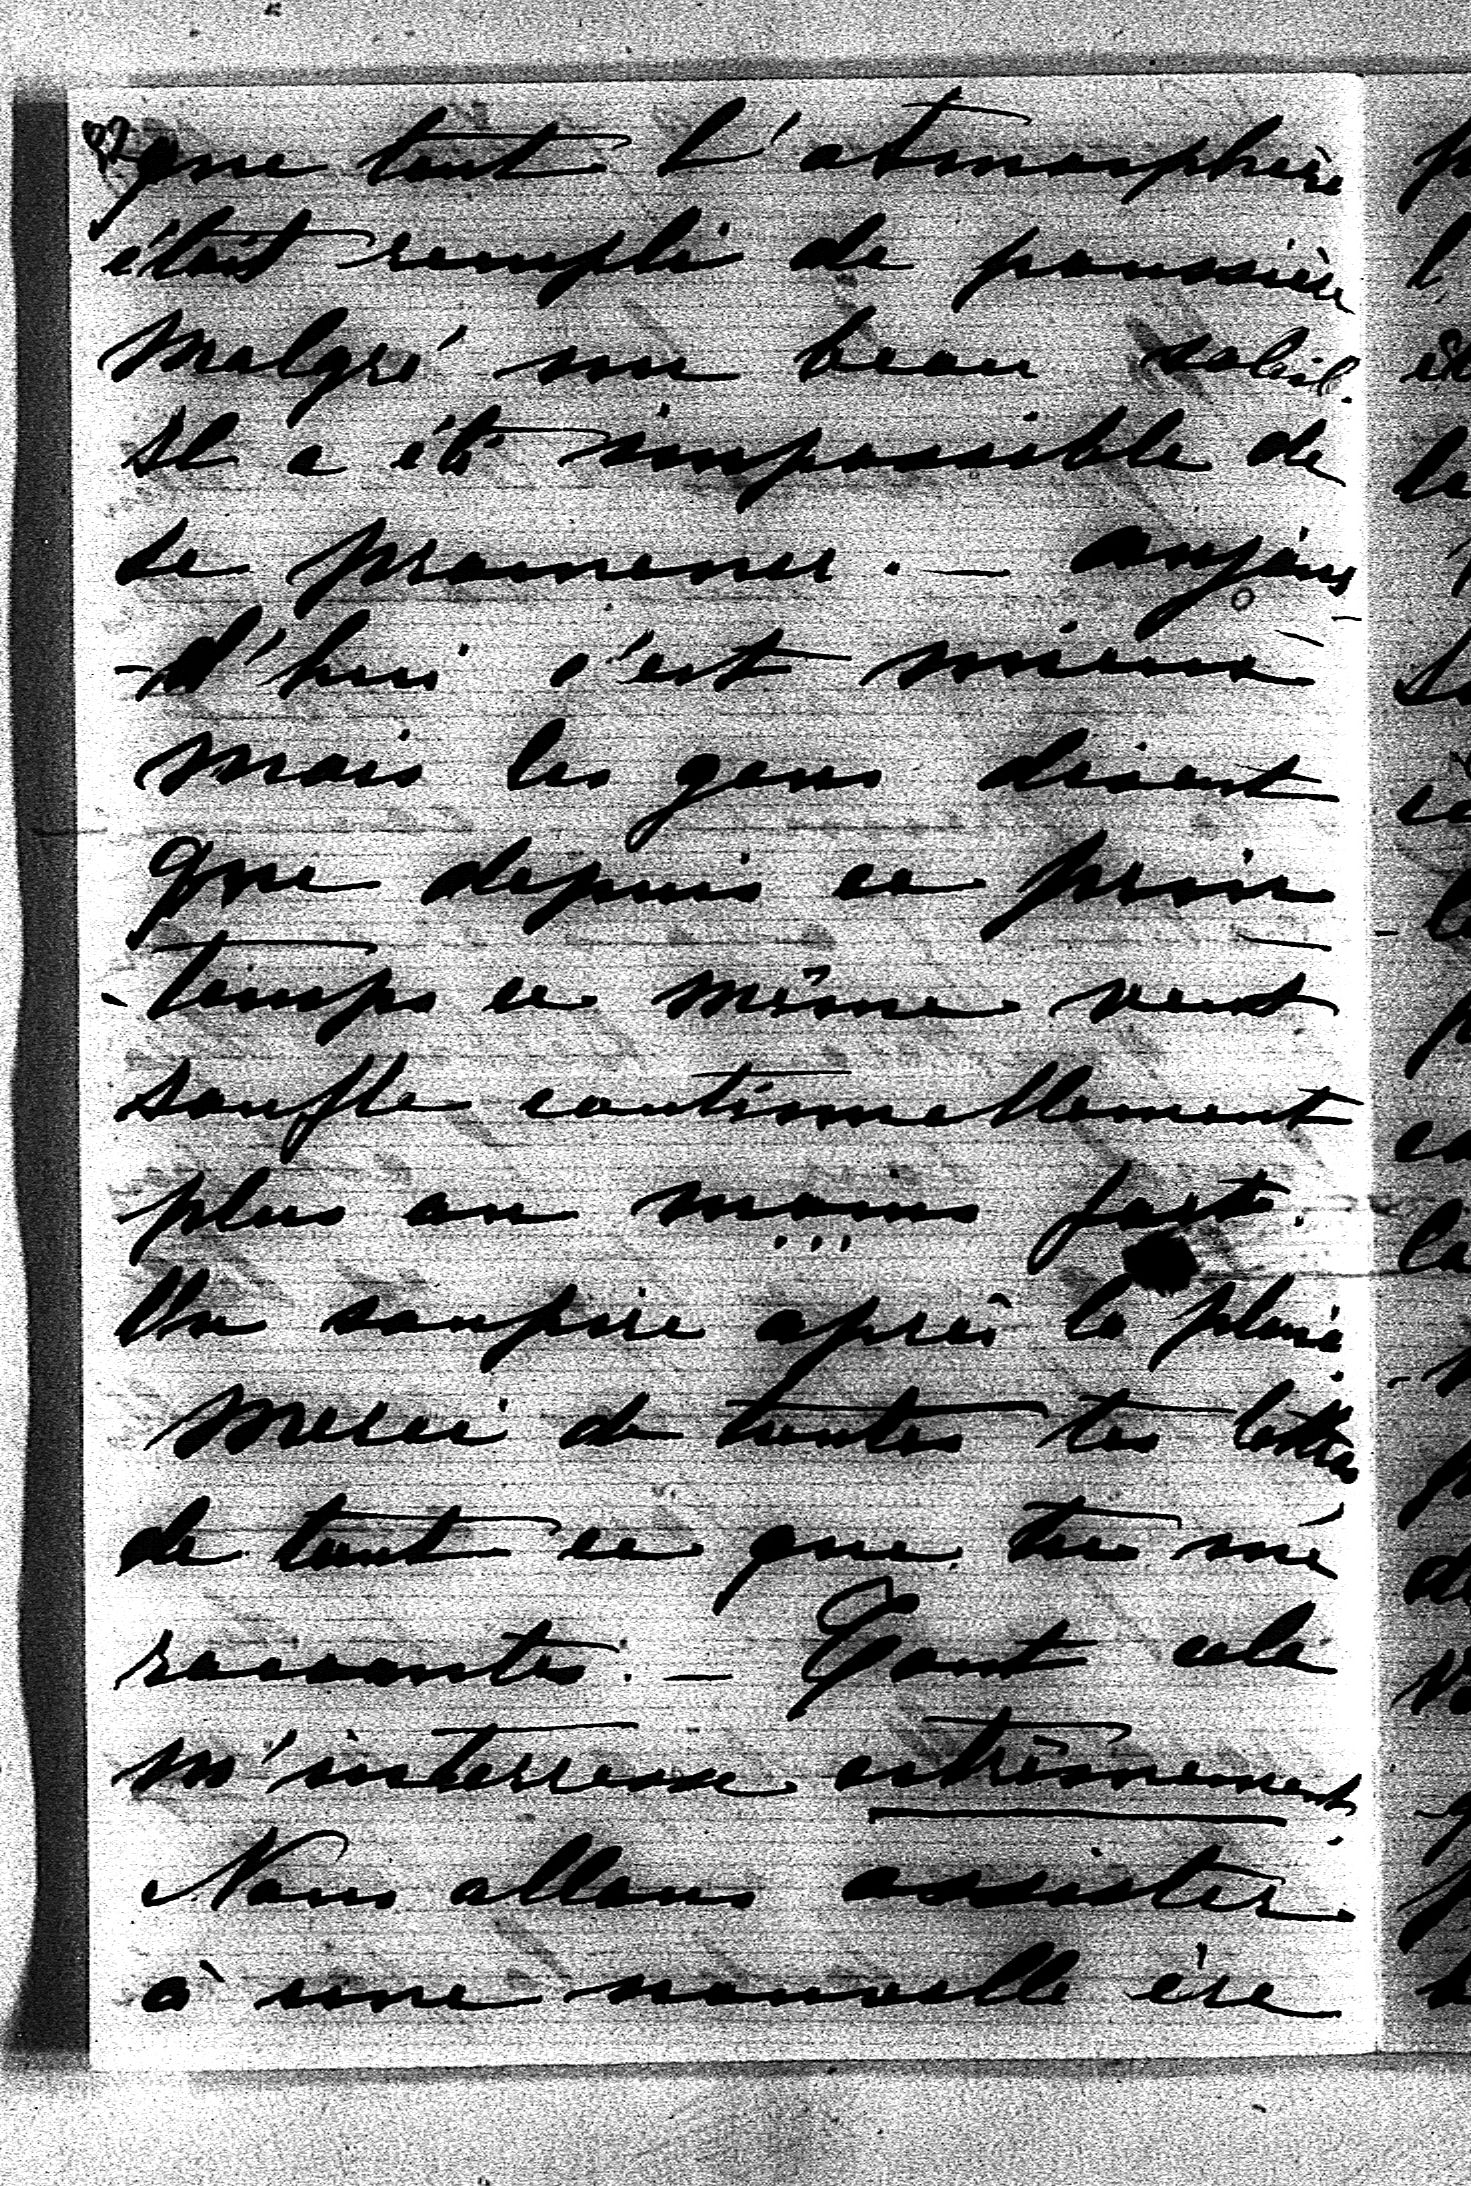 que tout l'atmosphère
était rempli de poussière
malgré un beau soleil.
Il a été impossible de
se promener. — aujour
-d'hui c'est mieux
mais les gens disent
que depuis ce prin
-temps ce même vent
soufle continuellement
plus ou moins fort.
On soupire après la pluie.
Merci de toutes tes lettres
de tout ce que tu me
racontes. — Tout cela
m'interresse extrêmement.
Nous allons assister
à une nouvelle ère